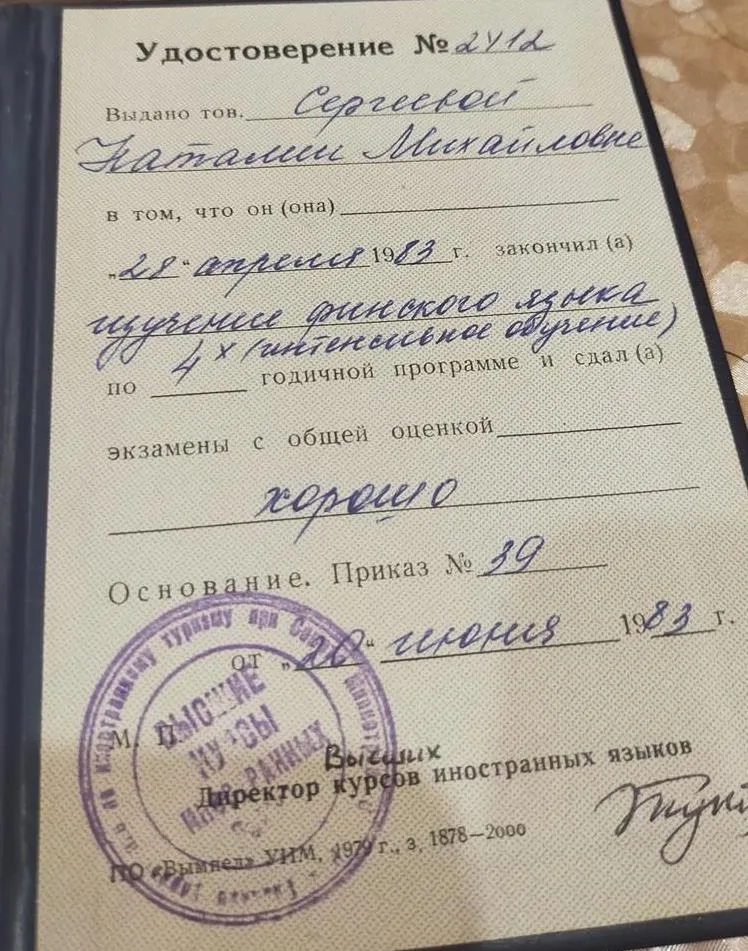 Удостоверение № 2412
Выдано тов. Сергеевой
Наталии Михайловне
в том, что он (она)
„28“ апреля 1983 г. закончил (а)
изучение финского языка
4х (интенсивное обучение)
по годичной программе и сдал (а)
экзамены с общей оценкой
хорошо
Основание. Приказ № 39
от „20“ июня 1983 г.
М. П.
Высших
Директор курсов иностранных языков
ПО «Вымпел» УИМ, 1979 г., з. 1878—2000
по иностранному туризму при
ВЫСШИЕ
КУРСЫ